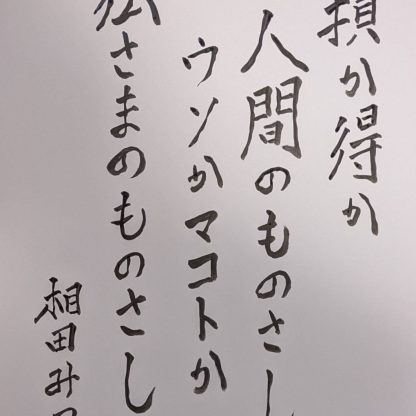 損か得か
人間のものさし
ウソかマコトか
仏さまのものさし
相田みつ